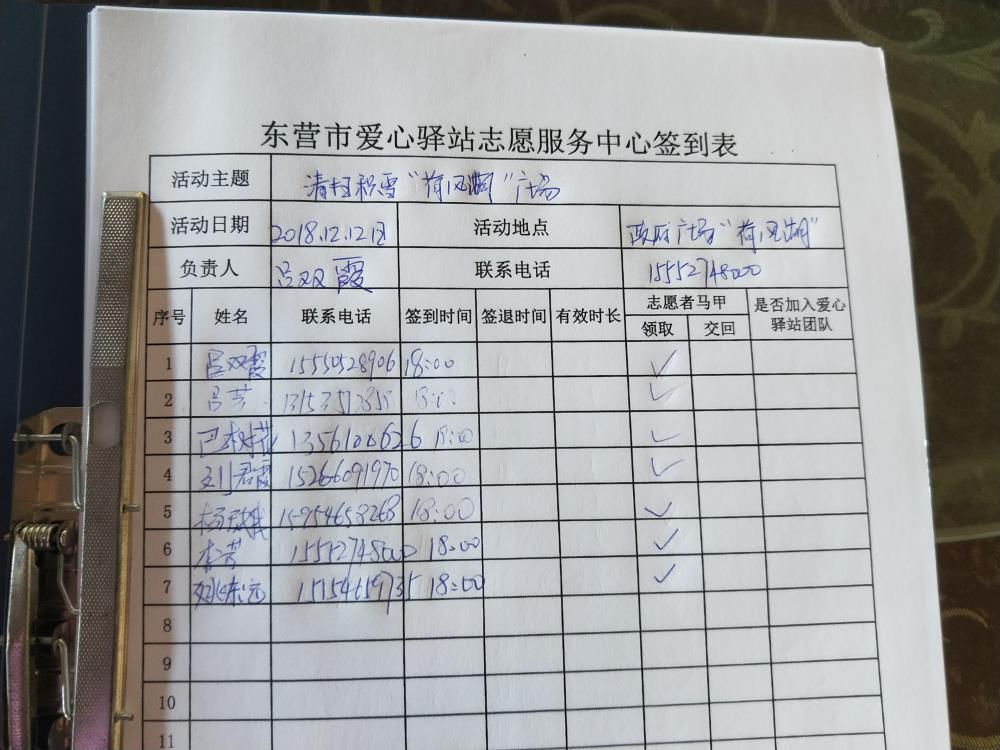 东营市爱心驿站志愿服务中心签到表
活动主题 清扫积雪“荷风湖”广场
活动日期 2018.12.12日 活动地点 政府广场“荷风湖”
负责人 吕双霞 联系电话 15552748000
序号 姓名 联系电话 签到时间 签退时间 有效时长 志愿者马甲 是否加入爱心驿站团队
领取 交回
1 吕双霞 15550528906 18:00 ✓
2 吕芸 18:00 ✓
3 巴树花 1356100626 18:00 ✓
4 刘君霞 15266091970 18:00 ✓
5 15954653268 18:00 ✓
6 李芸 15552748000 18:00 ✓
7 姚东远 15154659735 18:00 ✓
8
9
10
11